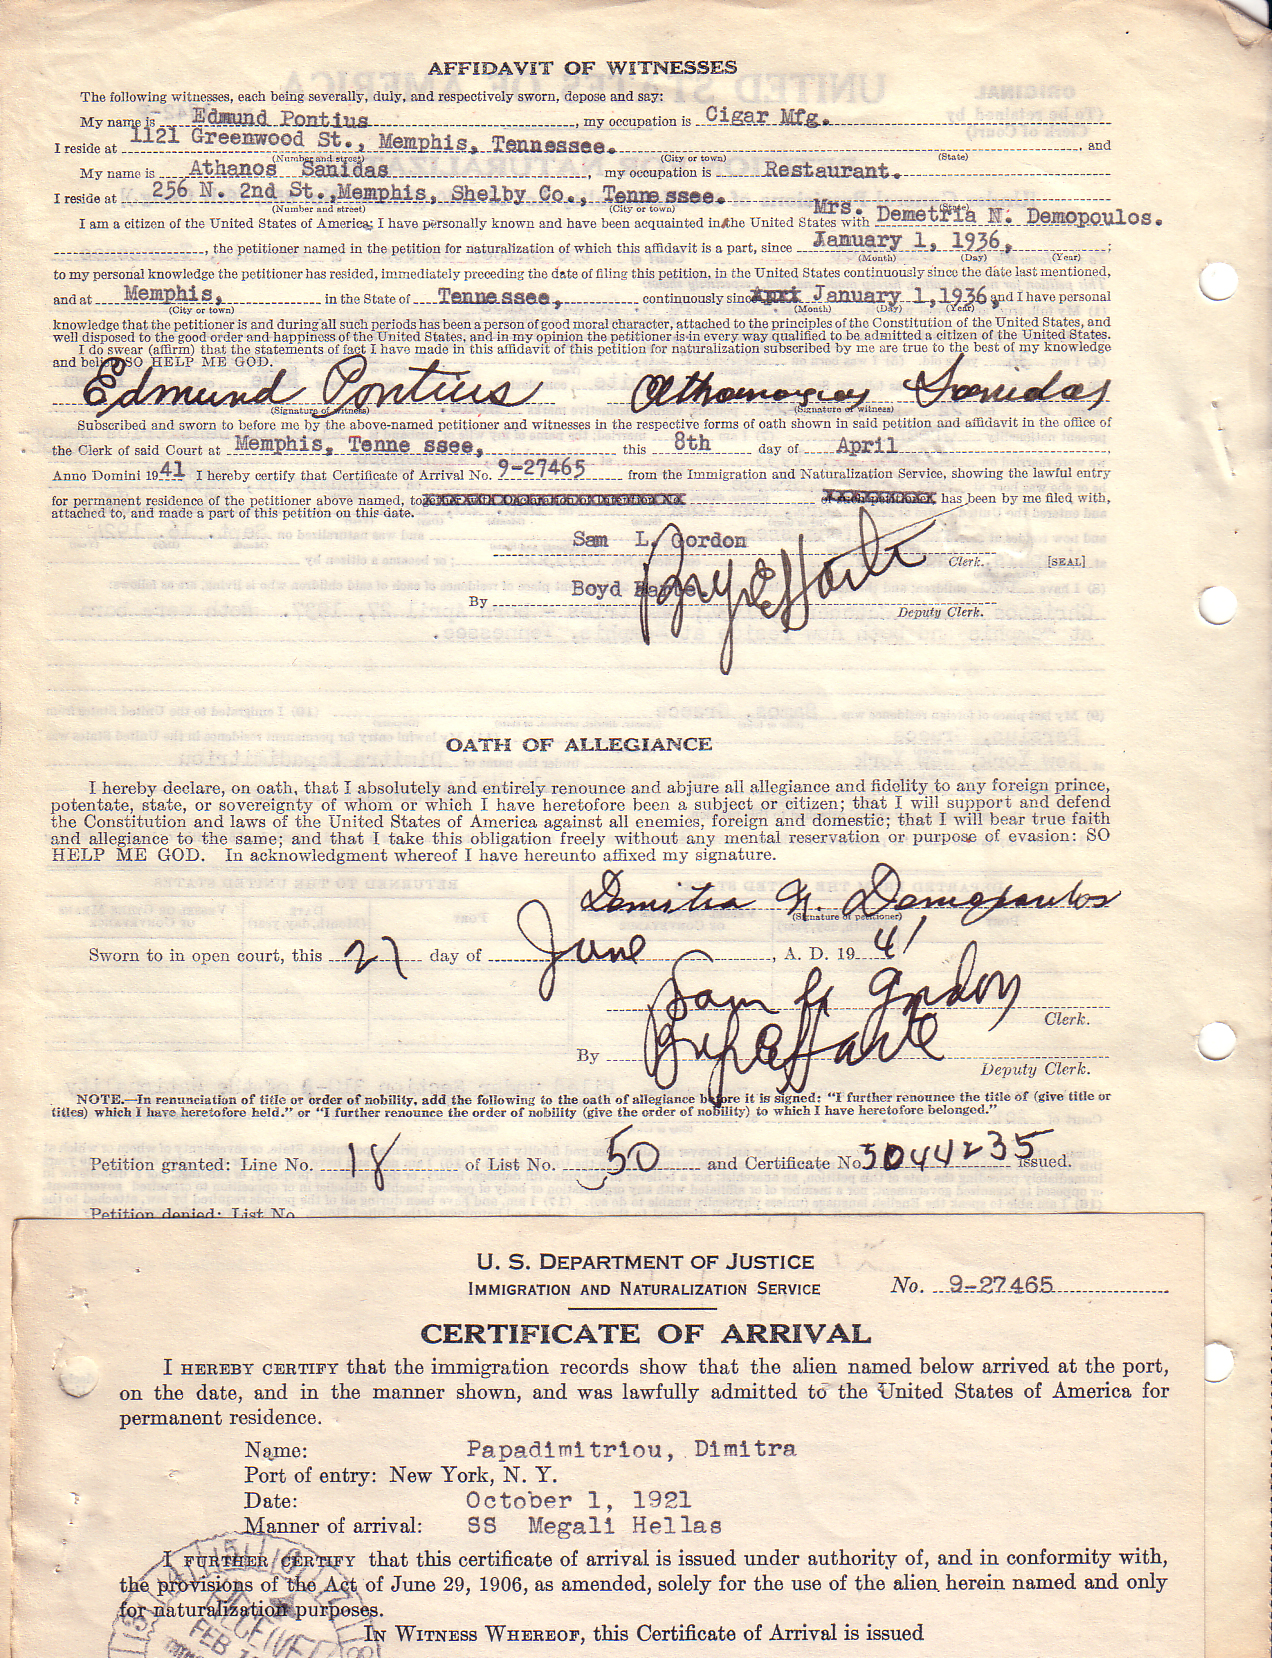 AFFIDAVIT OF WITNESSES
The following witnesses, each being severally, duly, and respectively sworn, depose and say:
My name is Edmund Pontius, my occupation is Cigar Mfg.
I reside at 1121 Greenwood St., Memphis, Tennessee., and
(Number and street) (City or town) (State)
My name is Athanos Sanidas my occupation is Restaurant.
I reside at 256 N. 2nd St., Memphis, Shelby Co., Tennessee.
(Number and street) (City or town) (State)
I am a citizen of the United States of America; I have personally known and have been acquainted in the United States with Mrs. Demetria N. Demopoulos.
, the petitioner named in the petition for naturalization of which this affidavit is a part, since January 1, 1936, ;
(Month) (Day) (Year)
to my personal knowledge the petitioner has resided, immediately preceding the date of filing this petition, in the United States continuously since the date last mentioned,
and at Memphis, in the State of Tennessee, continuously since January 1, 1936, and I have personal
(City or town) (Month) (Day) (Year)
knowledge that the petitioner is and during all such periods has been a person of good moral character, attached to the principles of the Constitution of the United States, and
well disposed to the good order and happiness of the United States, and in my opinion the petitioner is in every way qualified to be admitted a citizen of the United States.
I do swear (affirm) that the statements of fact I have made in this affidavit of this petition for naturalization subscribed by me are true to the best of my knowledge
and belief SO HELP ME GOD.
Edmund Pontius Athanasios Sanidas
(Signature of witness) (Signature of witness)
Subscribed and sworn to before me by the above-named petitioner and witnesses in the respective forms of oath shown in said petition and affidavit in the office of
the Clerk of said Court at Memphis, Tenne ssee, this 8th day of April,
Anno Domini 1941 I hereby certify that Certificate of Arrival No. 9-27465 from the Immigration and Naturalization Service, showing the lawful entry
for permanent residence of the petitioner above named, together with Declaration of Intention No. of such petitioner has been by me filed with,
attached to, and made a part of this petition on this date.
Sam L. Gordon
Clerk. [SEAL]
By Boyd Harte. Boyd Harte
Deputy Clerk.
OATH OF ALLEGIANCE
I hereby declare, on oath, that I absolutely and entirely renounce and abjure all allegiance and fidelity to any foreign prince,
potentate, state, or sovereignty of whom or which I have heretofore been a subject or citizen; that I will support and defend
the Constitution and laws of the United States of America against all enemies, foreign and domestic; that I will bear true faith
and allegiance to the same; and that I take this obligation freely without any mental reservation or purpose of evasion: SO
HELP ME GOD. In acknowledgment whereof I have hereunto affixed my signature.
Demitra N. Demopoulos
(Signature of petitioner)
Sworn to in open court, this 27 day of June, A. D. 1941
Sam L. Gordon
Clerk.
By Boyd Harte
Deputy Clerk.
NOTE.—In renunciation of title or order of nobility, add the following to the oath of allegiance before it is signed: "I further renounce the title of (give title or
titles) which I have heretofore held." or "I further renounce the order of nobility (give the order of nobility) to which I have heretofore belonged."
Petition granted: Line No. 18 of List No. 50 and Certificate No. 5044235 issued.
Petition denied: List No.
U. S. DEPARTMENT OF JUSTICE
IMMIGRATION AND NATURALIZATION SERVICE
No. 9-27465
CERTIFICATE OF ARRIVAL
I HEREBY CERTIFY that the immigration records show that the alien named below arrived at the port,
on the date, and in the manner shown, and was lawfully admitted to the United States of America for
permanent residence.
Name: Papadimitriou, Dimitra
Port of entry: New York, N. Y.
Date: October 1, 1921
Manner of arrival: SS Megali Hellas
I FURTHER CERTIFY that this certificate of arrival is issued under authority of, and in conformity with,
the provisions of the Act of June 29, 1906, as amended, solely for the use of the alien herein named and only
for naturalization purposes.
IN WITNESS WHEREOF, this Certificate of Arrival is issued
RECEIVED
FEB